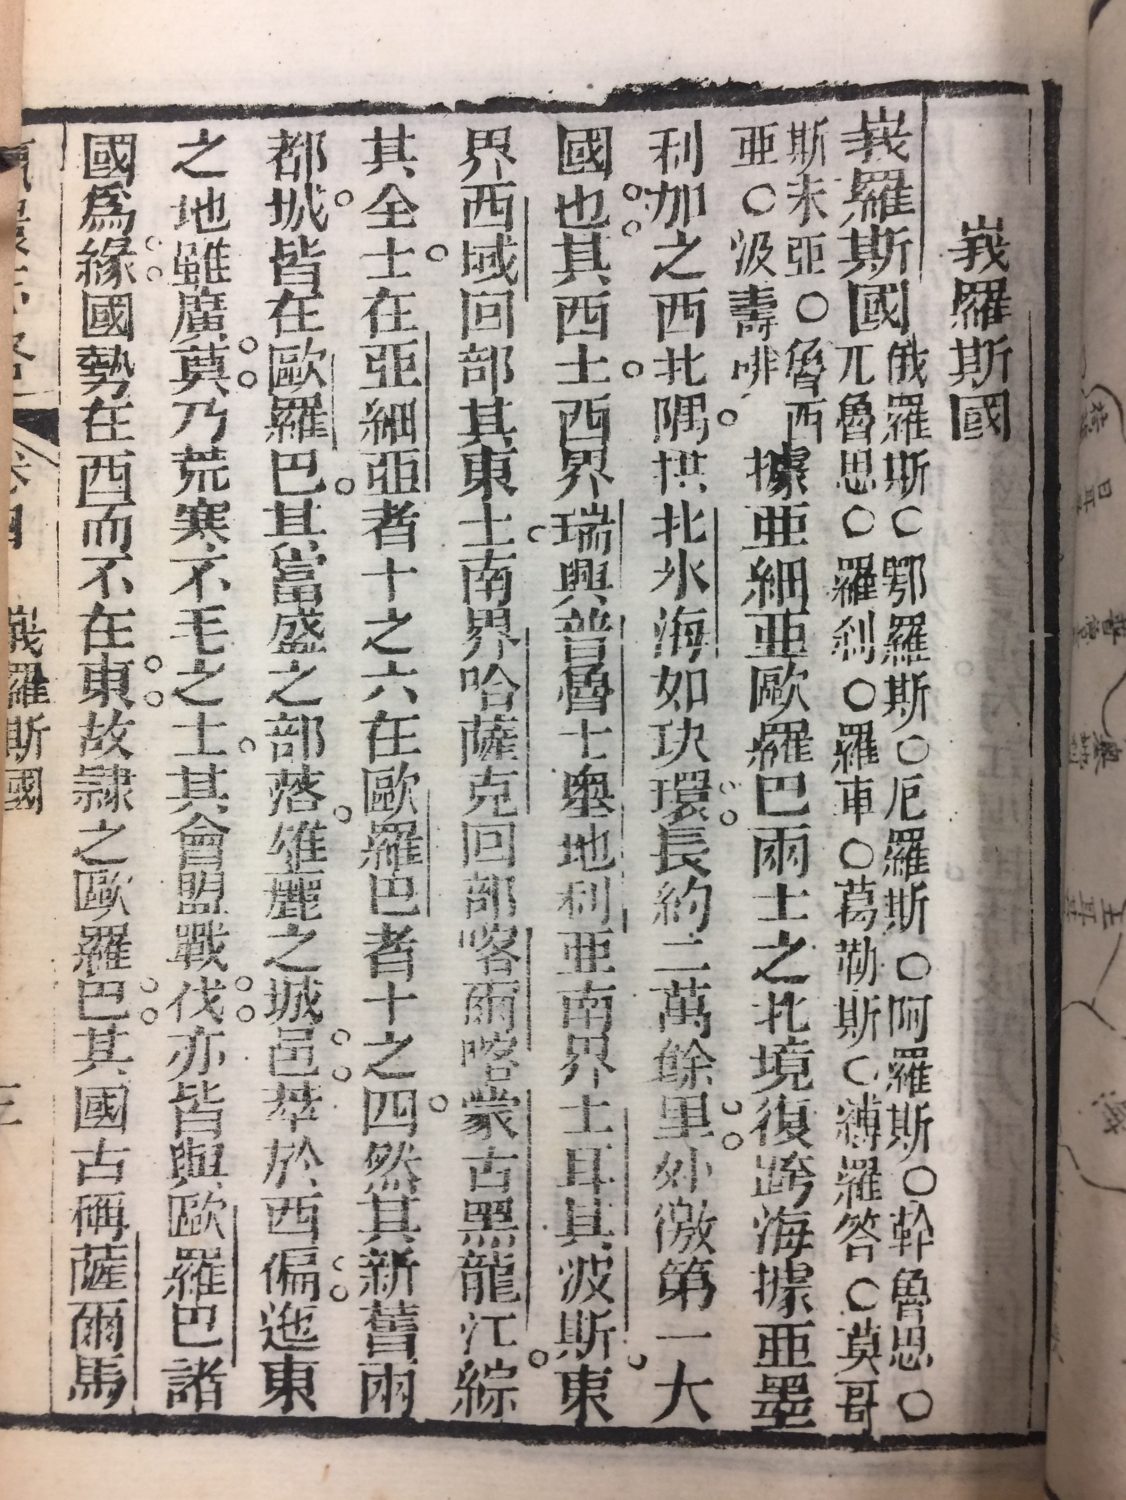 峩羅斯國
峩羅斯國俄羅斯○鄂羅斯○厄羅斯○阿羅斯○幹魯思○
兀魯思○羅刹○羅車○葛勒斯○縛羅答○莫哥
斯未亞○魯西
亞○汲壽啡據亞細亞歐羅巴兩土之北境復跨海據亞墨
利加之西北隅拱北氷海如玦環長約二萬餘里外徼第一大
國也其西土西界瑞興普魯士奥地利亞南界土耳其波斯東
界西域回部其東土南界哈薩克回部喀爾喀蒙古黑龍江綜
其全土在亞細亞者十之六在歐羅巴者十之四然其新舊兩
都城皆在歐羅巴其當盛之部落雄麗之城邑萃於西偏迤東
之地雖廣莫乃荒寒不毛之土其會盟戰伐亦皆與歐羅巴諸
國為緣國勢在西而不在東故隷之歐羅巴其國古稱薩爾馬
峩羅斯國
三